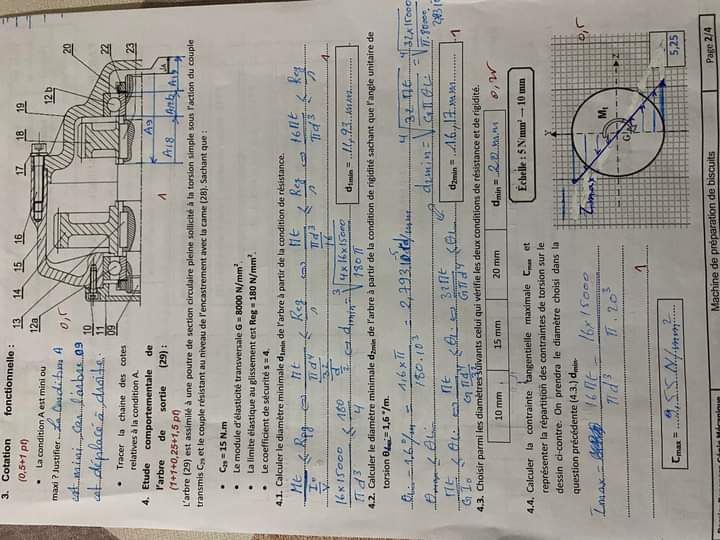 3. Cotation fonctionnelle :
(0,5+1 pt)
• La condition A est mini ou
maxi ? Justifier. La Condition A
est mini car l'arbre 09
est déplacé à droite.
• Tracer la chaine des cotes
relatives à la condition A.
13
14
15
16
17
18
19
12b
20
22
23
12a
10
11
09
0,5
A9
A18
A12b
A19
A
1
4. Etude comportementale de
l'arbre de sortie (29) :
(1+1+0,25+1,5 pt)
L'arbre (29) est assimilé à une poutre de section circulaire pleine sollicité à la torsion simple sous l'action du couple
transmis C29 et le couple résistant au niveau de l'encastrement avec la came (28). Sachant que :
• C29 = 15 N.m
• Le module d'élasticité transversale G = 8000 N/mm².
• La limite élastique au glissement est Reg = 180 N/mm².
• Le coefficient de sécurité s = 4.
4.1. Calculer le diamètre minimale d1min de l'arbre à partir la condition de résistance.
Mt / I0/V ≤ Reg/s ⇔ Mt / πd⁴/32 / d/2 ≤ Reg/s ⇔ Mt / πd³/16 ≤ Reg/s ⇔ 16Mt / πd³ ≤ Reg/s
16x15000 / πd³ ≤ 180/4 ⇔ d1min = ∛ 4x16x15000 / 180π
d1min = 11,93 mm
1
4.2. Calculer le diamètre minimale d2min de l'arbre à partir la condition de rigidité sachant que l'angle unitaire de
torsion θlim = 1,6 °/m.
θli = 1,6 °/m = 1,6 x π / 180.10³ = 2,793.10⁻⁵ rd/mm
θmax ≤ θli
Mt / G I0 ≤ θli ⇔ Mt / G πd⁴/32 ≤ θli ⇔ 32Mt / Gπd⁴ ≤ θli ⇔ d2min = ⁴√ 32Mt / Gπθli = ⁴√ 32x15000
d2min = 16,17 mm
1
4.3. Choisir parmi les diamètres suivants celui qui vérifie les deux conditions de résistance et de rigidité.
10 mm
15 mm
20 mm
dmin = 20 mm
0,25
4.4. Calculer la contrainte tangentielle maximale τmax et
représenter la répartition des contraintes de torsion sur le
dessin ci-contre. On prendre le diamètre choisi dans la
question précédente (4.3.) dmin.
τmax = 16Mt / πd³ = 16x15000 / π.20³
1
τmax = 9,55 N/mm²
Échelle : 5 N/mm² → 10 mm
τmax
Y
Z
G
Mt
0,5
5,25
Machine de préparation de biscuits
Page 2/4